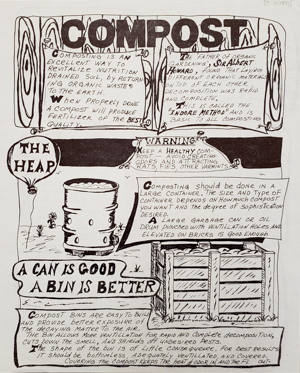 COMPOST
COMPOSTING IS AN
EXCELLENT WAY TO
REVITALIZE NUTRITION
DRAINED SOIL, BY RETURN
ING ORGANIC WASTES
TO THE EARTH.
WHEN PROPERLY DONE
A COMPOST WILL PRODUCE
FERTILIZER OF THE BEST
QUALITY.
THE FATHER OF ORGANIC
GARDENING, SIR ALBERT
HOWARD, FOUND THAT LAYING
DIFFERENT ORGANIC MATERIALS
ON TOP OF EACH OTHER,
DECOMPOSITION WAS RAPID
& COMPLETE.
THIS IS CALLED THE
INDORE METHOD AND IS
BASIC TO ALL COMPOSTING
THE HEAP
WARNING
KEEP A HEALTHY COM-
POST — AVOID CREATING
ODORS AND ATTRACTING
RATS, FLIES OTHER VARMINTS.
COMPOSTING should be done in a
LARGE CONTAINER. THE SIZE AND TYPE OF
CONTAINER DEPENDS ON HOW MUCH COMPOST
YOU WANT AND THE DEGREE OF SOPHISTICATION
DESIRED.
A LARGE GARBAGE CAN OR OIL
DRUM POUNCHED WITH VENTILATION HOLES AND
ELEVATED ON BRICKS IS GOOD ENOUGH
A CAN IS GOOD
A BIN IS BETTER
COMPOST BINS ARE EASY TO BUILD
AND PROVIDE BETTER EXPOSURE OF
THE DECAYING MATTER TO THE AIR.
THE BIN ALLOWS MORE VENTILATION FOR RAPID AND COMPLETE DECOMPOSITION,
CUTS DOWN THE SMELL, AND BREEDING OF UNDESIRED PESTS.
THE SHAPE OF THE BIN IS OF LITTLE CONSEQUENCE. FOR BEST RESULTS
IT SHOULD BE BOTTOMLESS, ADEQUATELY VENTILATED, AND COVERED.
COVERING THE COMPOST KEEPS THE HEAT & ODOR IN AND THE FL OUT.